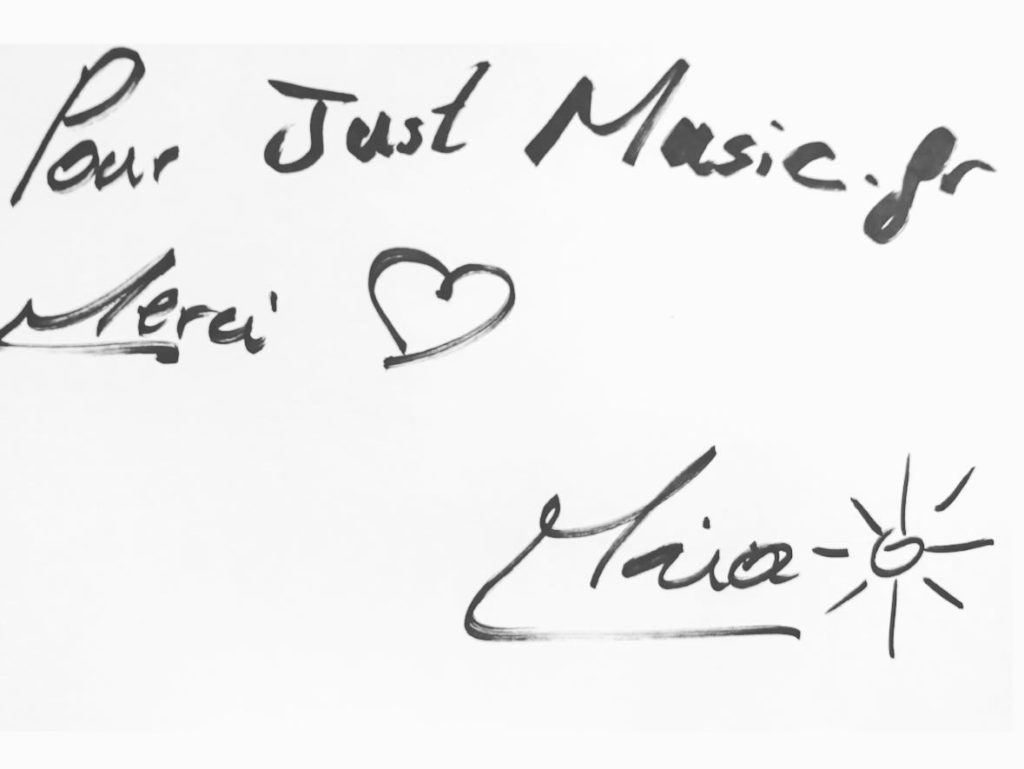 Pour Just Music.gr
Merci
Maia